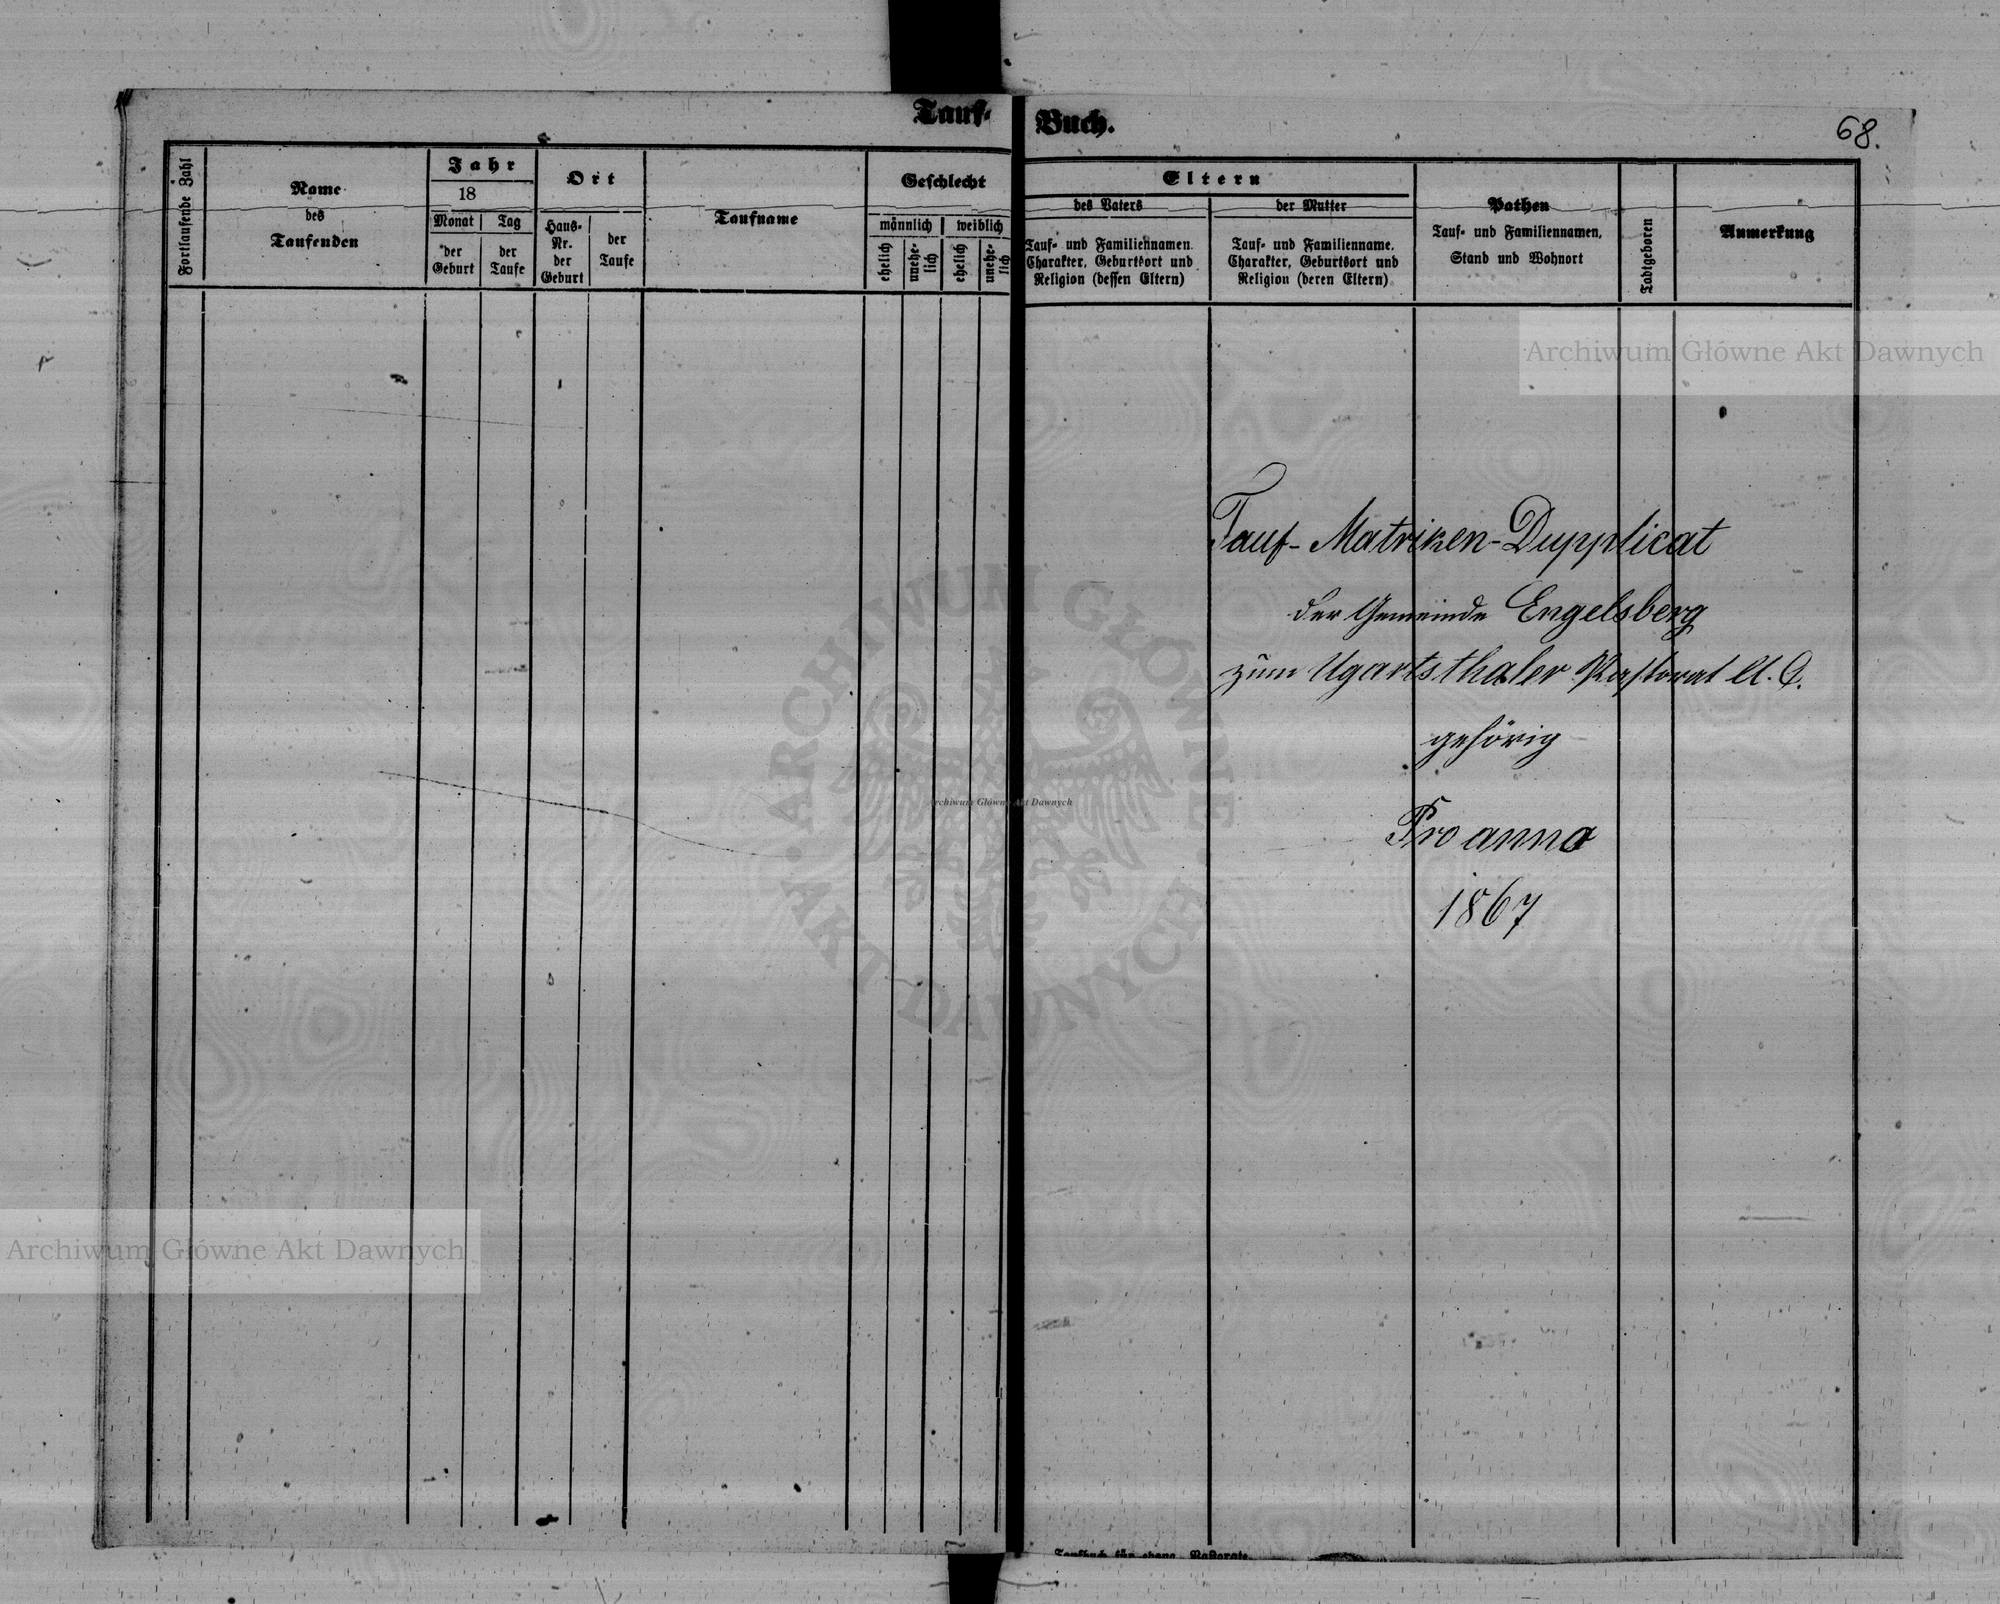 Tauf-
Buch.
68.
Fortlaufende Zahl
Name
des
Taufenden
Jahr
18
Monat
Tag
der
Geburt
der
Taufe
Ort
Haus-
Nr.
der
Geburt
der
Taufe
Taufname
Geschlecht
männlich
weiblich
ehelich
unehe-
lich
ehelich
unehe-
lich
Eltern
des Vaters
Tauf- und Familiennamen,
Charakter, Geburtsort und
Religion (dessen Eltern)
der Mutter
Tauf- und Familienname,
Charakter, Geburtsort und
Religion (deren Eltern)
Pathen
Tauf- und Familiennamen,
Stand und Wohnort
Todtgeboren
Anmerkung
Tauf-Matriken-Dupplicat
der Gemeinde Engelsberg
zum Ugartsthaler Pastorat A. C.
gehörig
Pro anno
1867
Taufbuch für evang. Pastorate.
Archiwum Główne Akt Dawnych
ARCHIWUM GŁÓWNE
AKT DAWNYCH
Archiwum Główne Akt Dawnych
Archiwum Główne Akt Dawnych